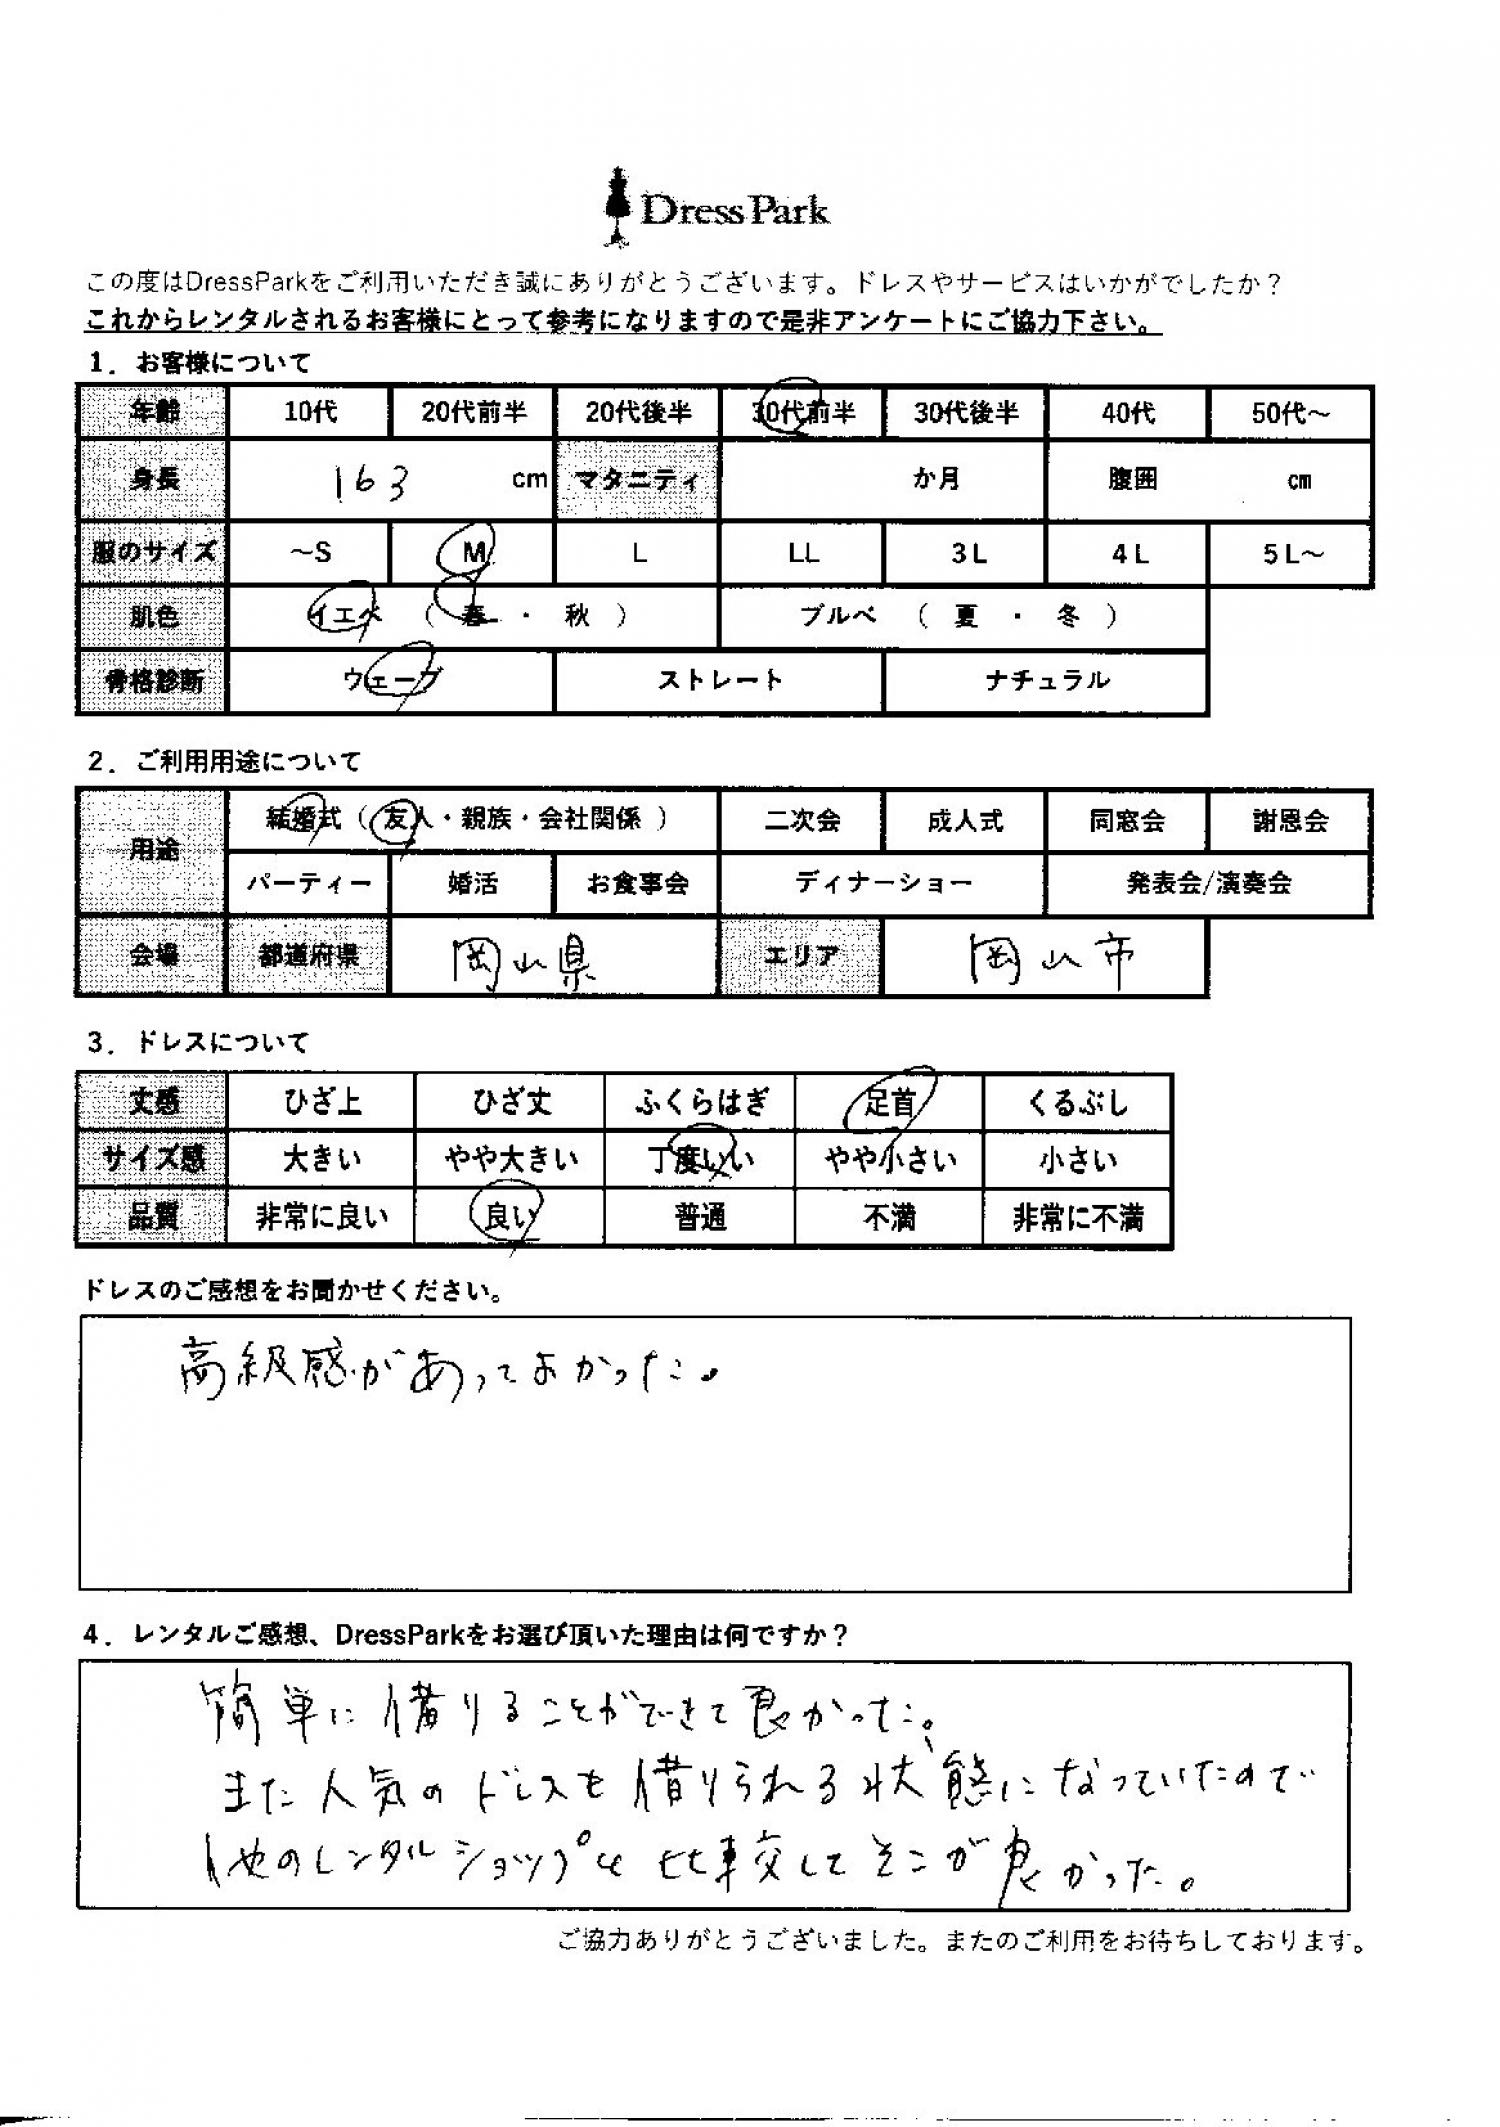 DressPark
この度はDressParkをご利用いただき誠にありがとうございます。ドレスやサービスはいかがでしたか？
これからレンタルされるお客様にとって参考になりますので是非アンケートにご協力下さい。
1．お客様について
年齢 10代 20代前半 20代後半 30代前半 30代後半 40代 50代～
身長 163 cm マタニティ か月 腹囲 cm
服のサイズ ～S M L LL 3L 4L 5L～
肌色 イエベ （ 春 ・ 秋 ） ブルベ （ 夏 ・ 冬 ）
骨格診断 ウェーブ ストレート ナチュラル
2．ご利用用途について
用途 結婚式（ 友人・親族・会社関係 ） 二次会 成人式 同窓会 謝恩会
パーティー 婚活 お食事会 ディナーショー 発表会/演奏会
会場 都道府県 岡山県 エリア 岡山市
3．ドレスについて
丈感 ひざ上 ひざ丈 ふくらはぎ 足首 くるぶし
サイズ感 大きい やや大きい 丁度いい やや小さい 小さい
品質 非常に良い 良い 普通 不満 非常に不満
ドレスのご感想をお聞かせください。
高級感があってよかった。
4．レンタルご感想、DressParkをお選び頂いた理由は何ですか？
簡単に借りることができて良かった。
また人気のドレスも借りられる状態になっていたので
他のレンタルショップと比較してそこが良かった。
ご協力ありがとうございました。またのご利用をお待ちしております。